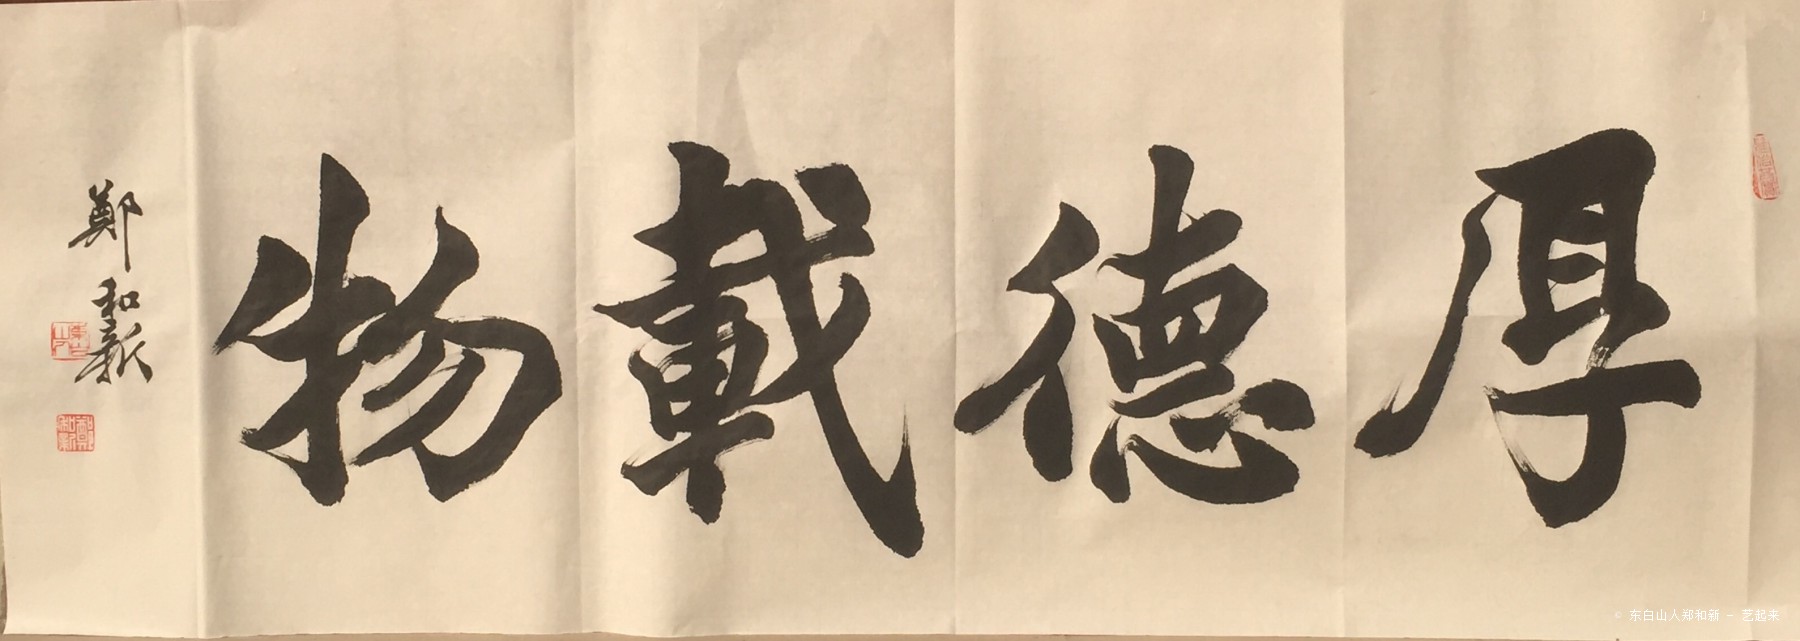 厚德載物
鄭和新
© 东白山人郑和新 - 艺起来